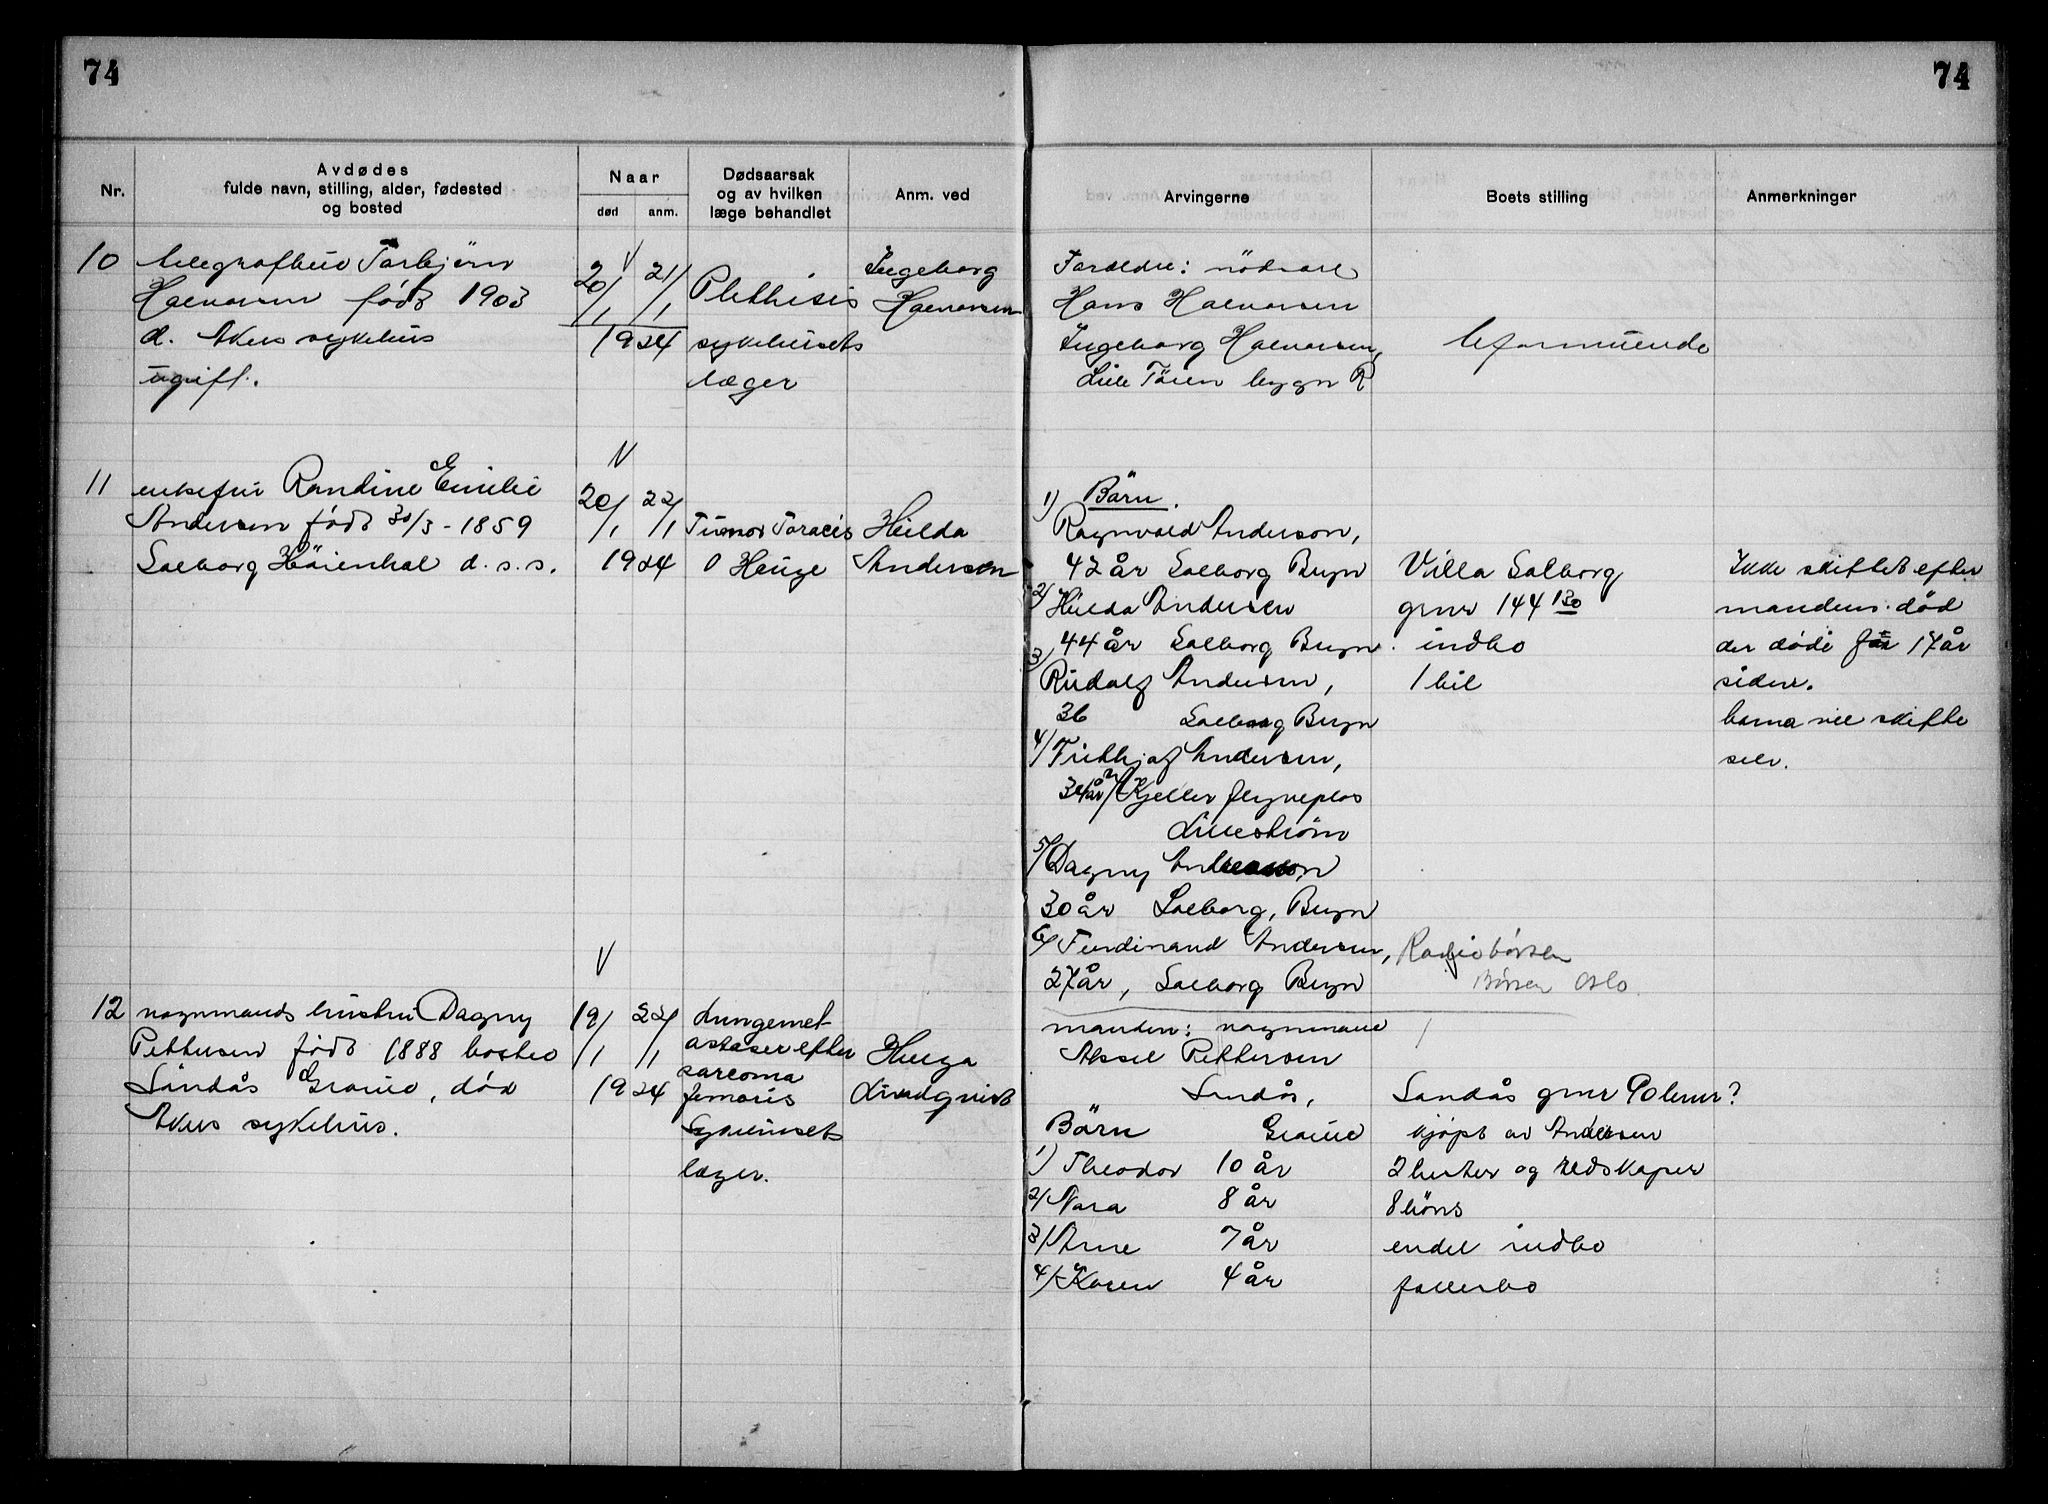 74
74
Nr.
Avdødes
fulde navn, stilling, alder, fødested
og bosted
Naar
død
anm.
Dødsaarsak
og av hvilken
læge behandlet
Anm. ved
Arvingerne
Boets stilling
Anmerkninger
10
telegrafbud Torbjørn
Halvorsen født 1903
d. Akers sykehus
ugift.
20/1 21/1
1924
Phthisis
sykehusets
læger
Ingeborg
Halvorsen
Forældre:
Hans Halvorsen
Ingeborg Halvorsen,
Lille Tøien bygn R
Uformuende
11
enkefru Randine Emilie
Andersen født 30/3 - 1859
Solborg Höienhal d. s. s.
20/1 22/1
1924
Tumor Toracis
O Hauge
Hulda
Andersen
1) Börn.
Ragnvald Anderson,
42 år Solborg Bryn
2/ Hulda Andersen
44 år Solborg Bryn
3/
Rudolf Andersen,
36 Solborg Bryn
4/ Frithjof Andersen,
34 år Kjeller flyveplas
Lillestrøm
5/ Dagny Anderson
30 år Solborg, Bryn
6/ Ferdinand Andersen,
27 år, Solborg Bryn
Villa Solborg
gnr 144 130
indbo
1 bil
Radiobörsen
Börsen Oslo
Ikke skiftet efter
mandens død
der døde for 17 år
siden.
barna vil skifte
selv.
12
vognmands hustru Dagny
Pettersen født 1888 bosted
Sandås Grorud, död
Akers sykehus.
19/1 22/1
1924
Lungemet-
astaser efter
sarcoma
femoris
Sykehusets
læger.
Helga
Lindqvist
manden: vognmand
Aksel Pettersen
Sandås,
Grorud
Börn
1) Theodor 10 år
2/ Nora 8 år
3/ Arne 7 år
4/ Karen 4 år
Sandås gnr 90 bnr ?
kjøpt av Andersen
2 hester og redskaper
8 höns
endel indbo
fællesbo